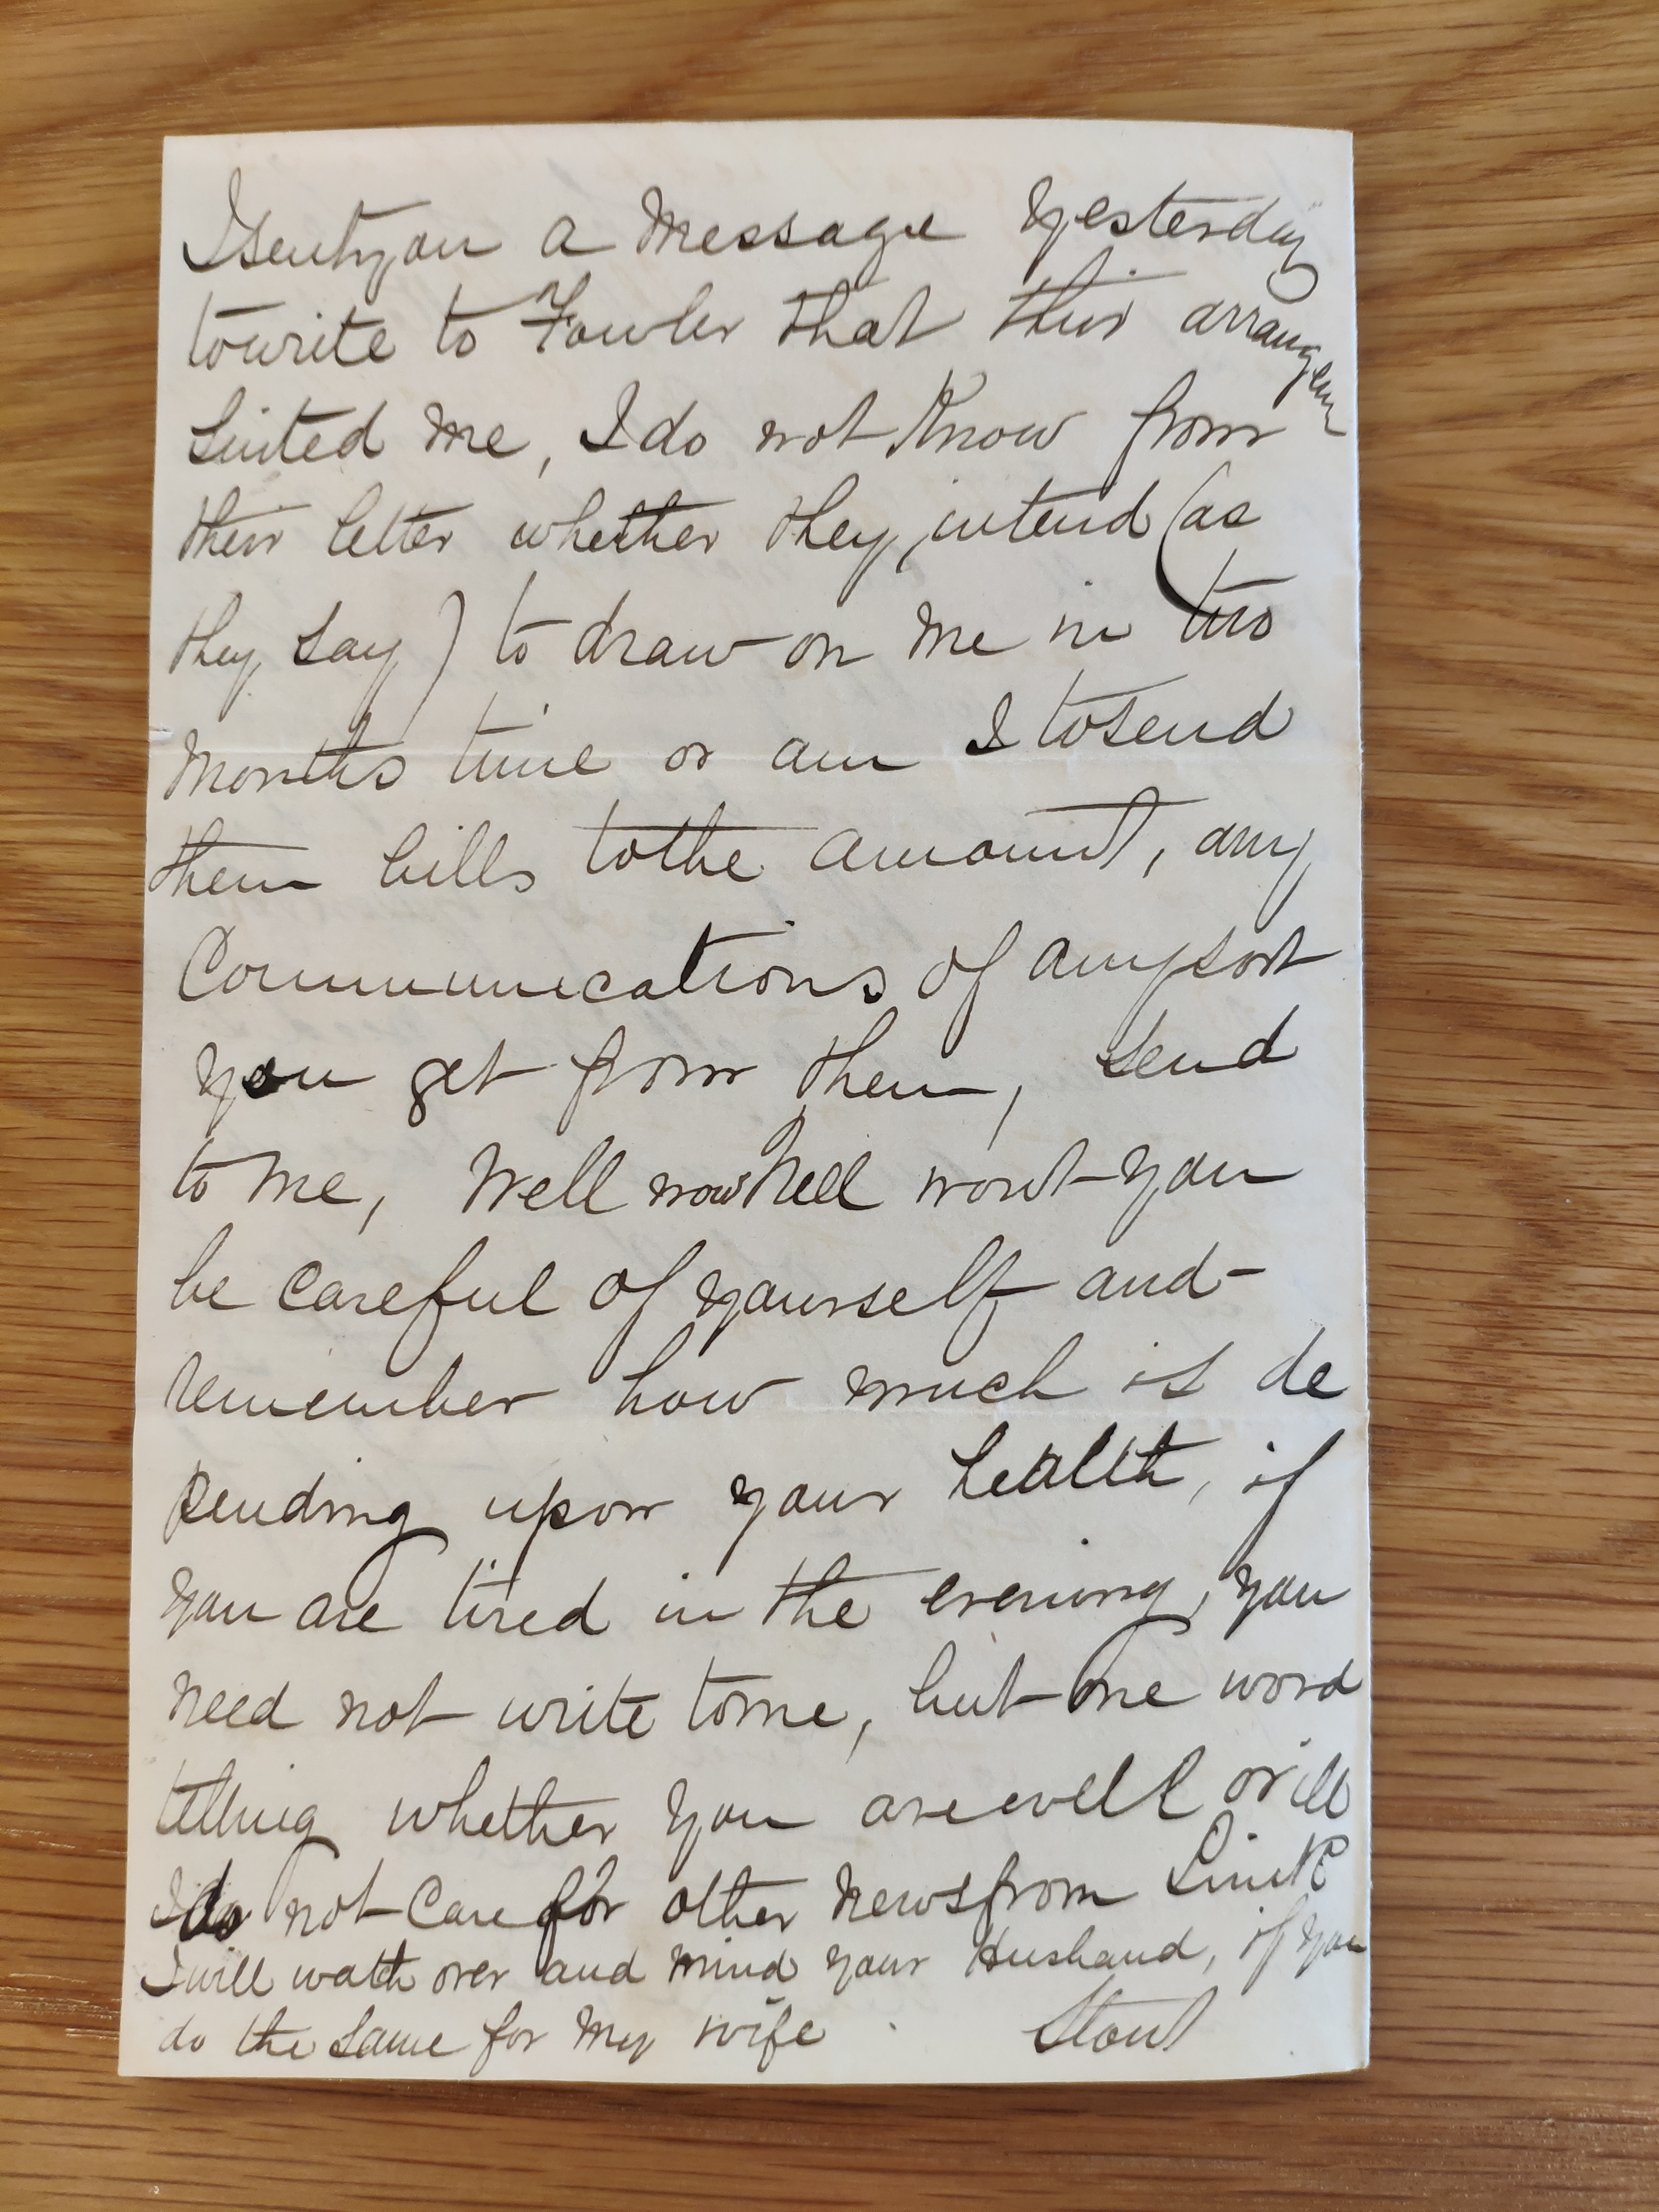 I sent you a message yesterday
to write to Fowler that this arrangem
suited me, I do not know from
their letter whether they intend (as
they say) to draw on me in two
months time or am I to send
them bills to the amount, any
Communications of any sort
you get from them, send
to me, Well now Nell wont you
be careful of yourself and
remember how much is de
pending upon your health, if
you are tired in the evening, you
need not write to me, but one word
telling whether you are well or ill
I do not care for other news from
I will watch over and mind your Husband, if you
do the same for my wife. Stout